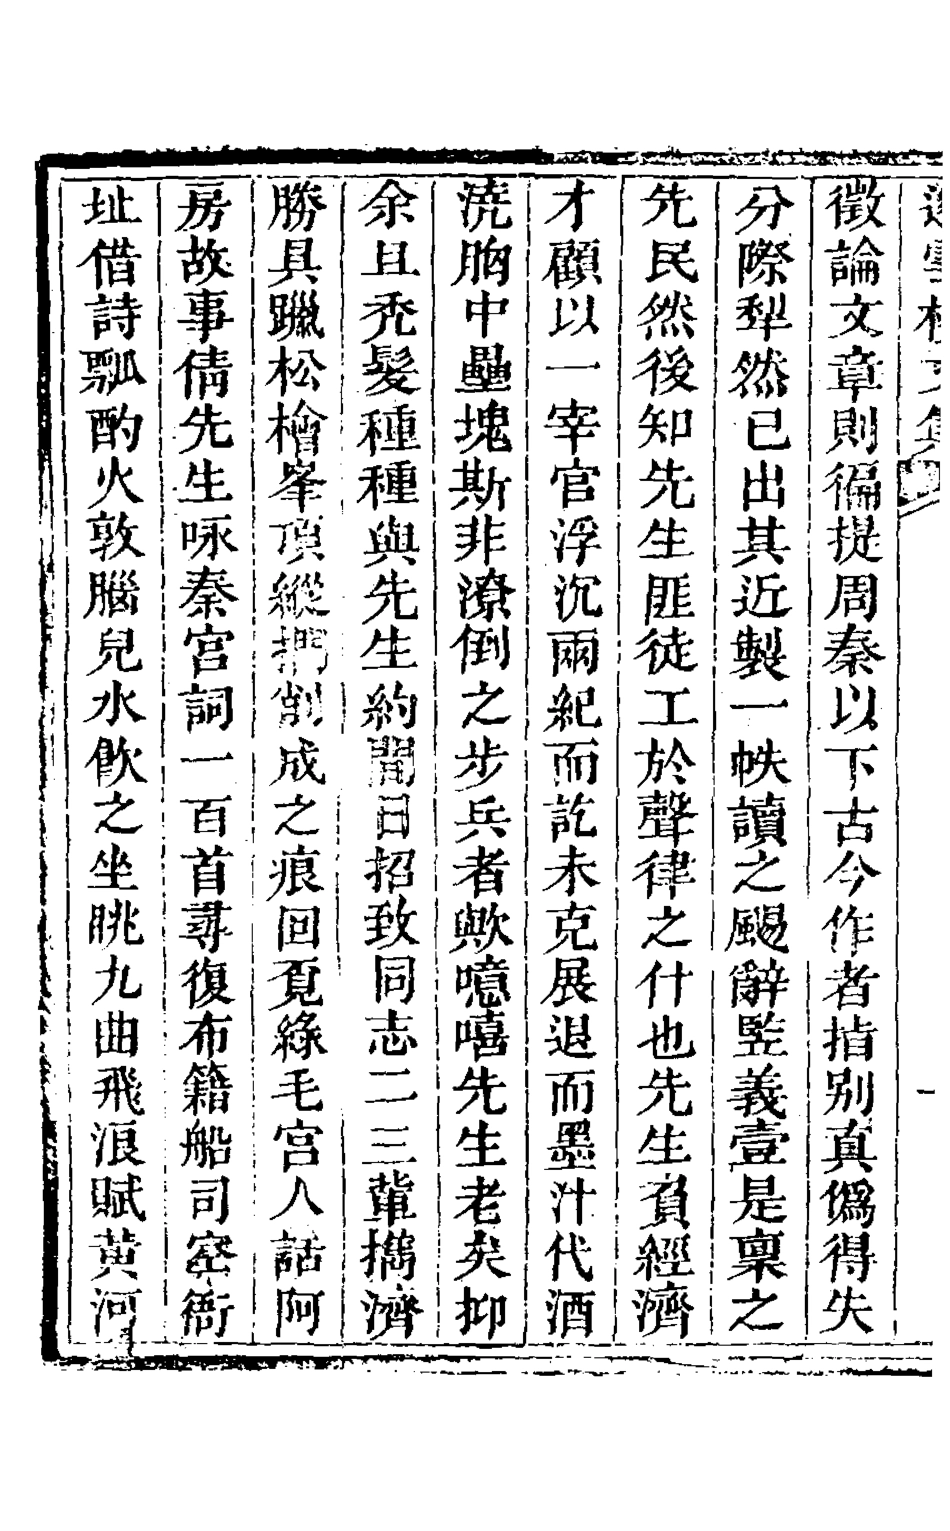 徵論文章則徧提周秦以下古今作者指别真僞得失
分際犁然已出其近製一帙讀之颺辭竪義壹是稟之
先民然後知先生匪徒工於聲律之什也先生負經濟
才顧以一宰官浮沉兩紀而訖未克展退而墨汁代酒
澆胸中壘塊斯非潦倒之步兵者歟噫嘻先生老矣抑
余且禿髮種種與先生約間日招致同志二三輩擕濟
勝具躐松檜峯頂縱捫削成之痕回覓綠毛宫人話阿
房故事倩先生咏秦宫詞一百首尋復布籍船司空衙
址借詩瓢酌火敦腦兒水飲之坐眺九曲飛浪賦黄河